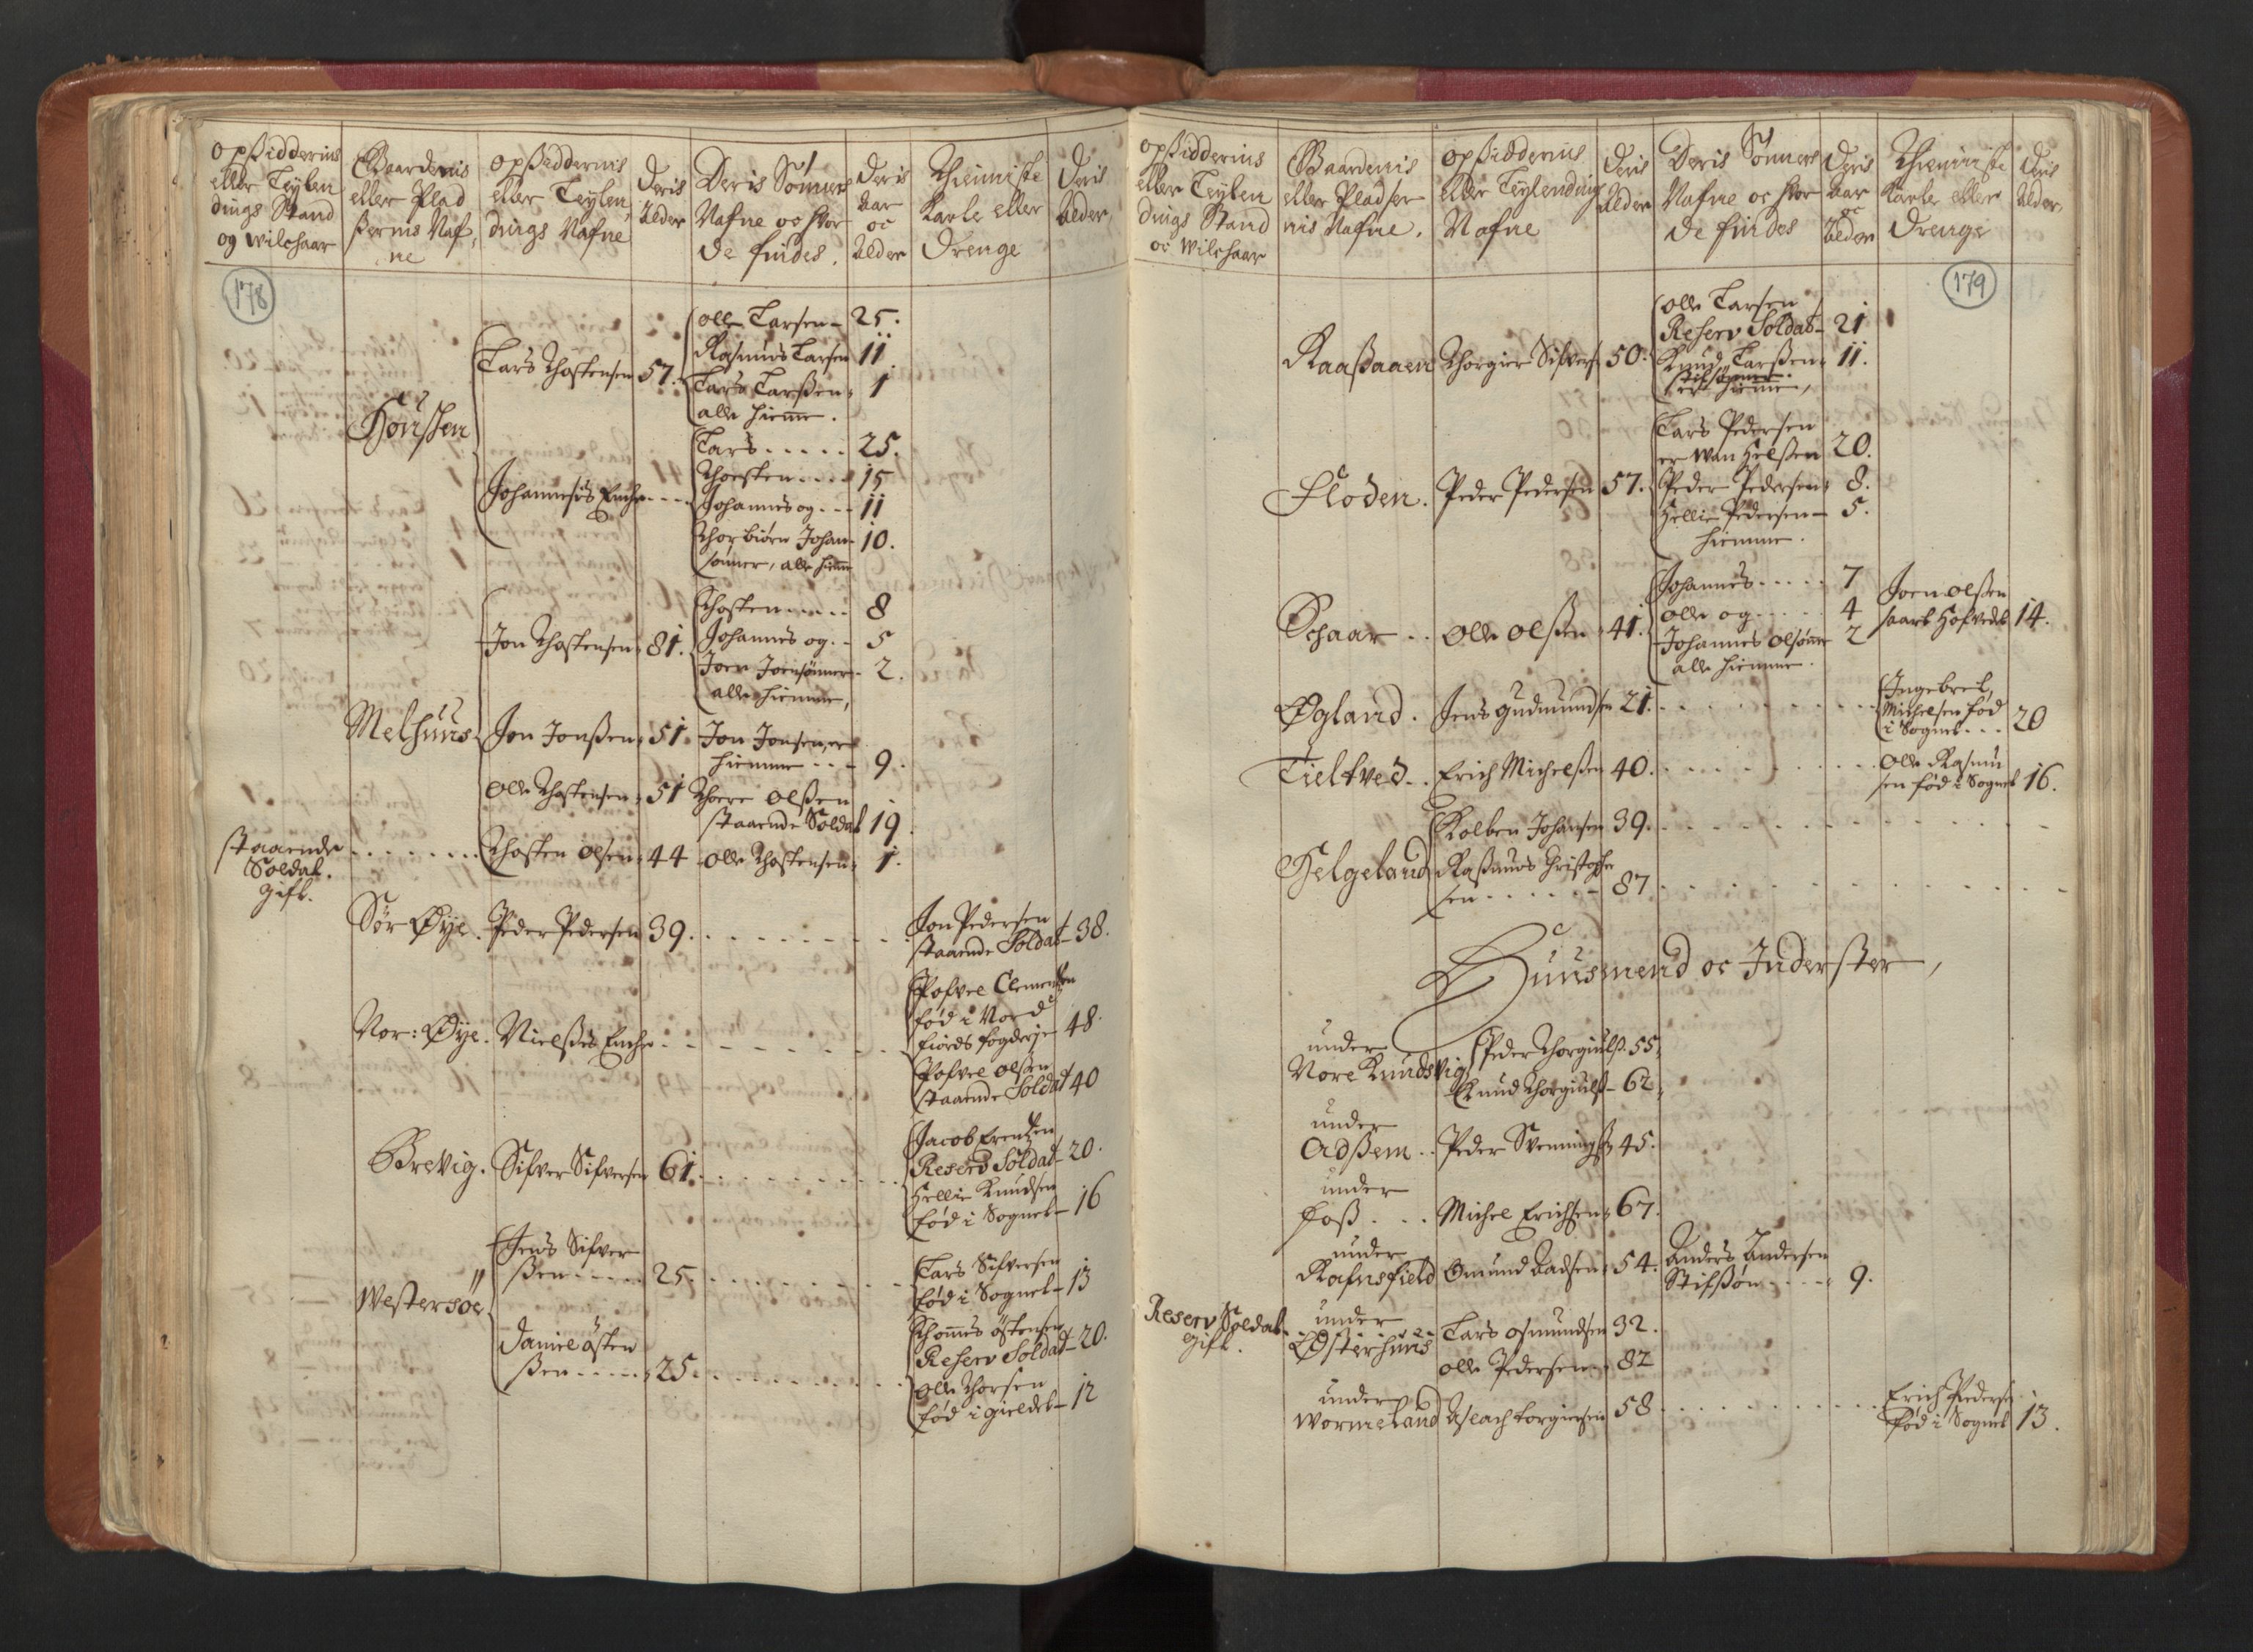 opßidderens
eller Leylen
dings Stand
og wilchaar
Gaardernis
eller Plad
ßernis Naf,
ne
opßiddernis
eller Leylen,
dings Nafne
Deris
Alder
Deris Sønners
Nafne oc hvor
de findes.
Deris
Aar
oc
Alder
Thienniste
Karle eller
Drenge
Deris
Alder
178
Hönßen
Lars Thostensen 57.
Olle Larsen 25.
Rasmus Larsen 11
Lars Larßen 1
alle hieme.
Johannesis Enche
Lars 25.
Thorsten 15
Johannes og 11
Thorbiörn Johan 10.
sönner, alle hieme
Melhuus
Jon Thostensen 81.
Thosten 8
Johannes og 5
Joen Joensönner 2.
alle hiemme,
Jon Jonßen 51
Jon Jonsen, er
hiemme 9.
Olle Thostensen 51
Thore Olßen
staaende Soldat 19
staaende
Soldat.
gift.
Thosten Olsen 44
Olle Thostensen 1.
Sör Øye. Peder Pedersen 39.
Jon Pedersen
staaende Soldat 38.
Nor: Øye. Nielßes Enche
Pofvel Clementzen
fød i Nord
fiords fogderje 48.
Pofvel Olßen
staaende Soldat 40
Brevig. Sifver Sifversen 61.
Jacob Erentzen
Reserv Soldat 20.
Hellie Knudsen
fød i Sognet 16
Westersöe
Jens Sifver
ßen 25.
Lars Sifversen
fød i Sognet 13
Daniel östen
ßen 25.
Thomes östensen
Reserv Soldat 20.
Olle Thorsen
fød i gieldet 12
opßidderens
eller Leylen
dings Stand
oc wilchaar
Gaardenis
eller Pladser
nis Nafne.
opßiddernis
eller Leylending
Nafne
Deris
Alder
Deris Sønners
Nafne oc hvor
de findes
Deris
Aar
oc
Alder
Thienniste
Karle eller
Drenge
Deris
Alder
179
Raaßaaen Thorgier Sifvers 50.
Olle Larsen
Reserv Soldat 21
Knud Larßen 11.
stifsönner
er hieme,
Floden. Peder Pedersen 57.
Lars Pedersen
er Wan Helßen 20.
Peder Pedersen 8.
Hellie Pedersen 5.
hiemme.
Schaar Olle Olßen 41.
Johannes 7
Olle og 4
Johannes Olsönner 2
alle hiemme.
Joen Olßen
14.
Øgland. Jens Gudmundsen 21.
Ingebret
Michelsen fød
i Sognet 20
Tieltved. Erich Michelßen 40.
Olle Rasmu
sen fød i Sognet 16.
Helgeland
Kolben Johansen 39.
Raßmus Christopher
sen 87
Huusmend oc Inderster,
under
Nore Knudsvig
Peder Thorgiulß. 55,
Knud Thorgiulß 62,
under
Adßem Peder Svenningß 45.
under
Foß Michel Erichsen 67.
under
Rafnsfield Omund Aadsen 54.
Anders Andersen
Stifßön 9.
Reserv Soldat
gift.
under
Østerhuus
Lars Osmundsen 32.
Olle Pedersen 82
under
Wormeland Aslach Torgiersen 58
Erich Pedersen
fød i Sognet 13.